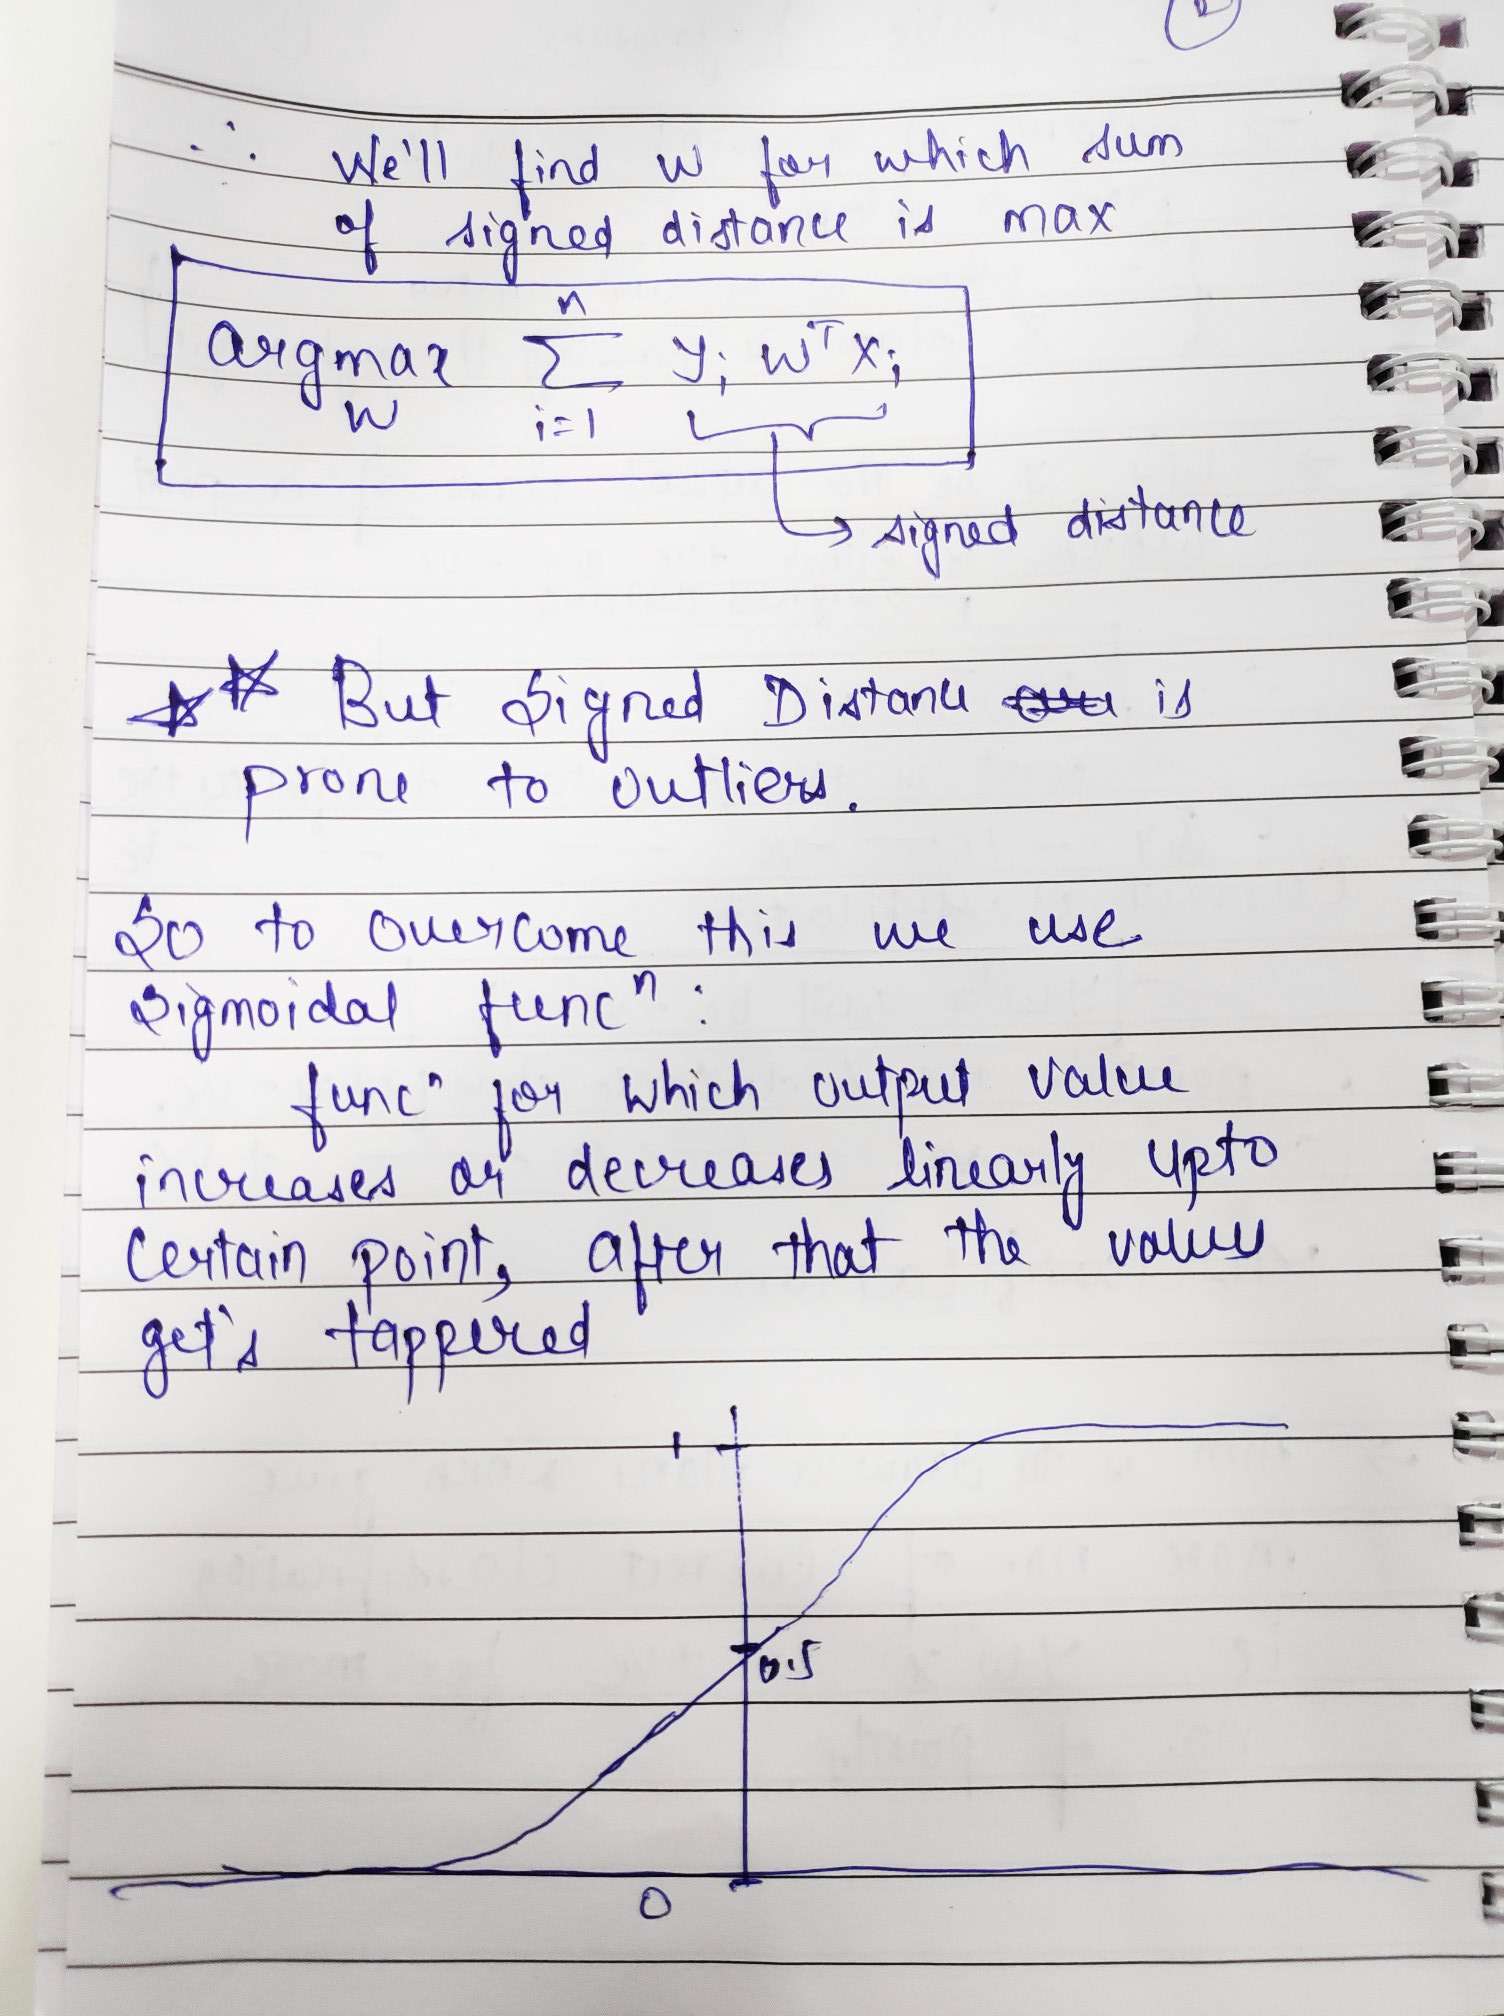 ∴ We'll find w for which sum
of signed distance is max
argmax_w Σ_{i=1}^{n} y_i w^T x_i
→ signed distance
** But Signed Distance is
prone to outliers.
So to overcome this we use
Sigmoidal funcⁿ :
funcⁿ for which output value
increases or decreases linearly upto
Certain point, after that the values
get's tappered
1
0.5
0